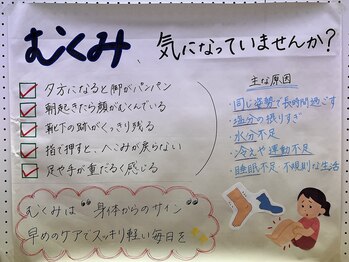 むくみ、気になっていませんか?
夕方になると脚がパンパン
朝起きたら顔がむくんでいる
靴下の跡がくっきり残る
指で押すと、へこみが戻らない
足や手が重だるく感じる
主な原因
・同じ姿勢で長時間過ごす
・塩分の摂りすぎ
・水分不足
・冷えや運動不足
・睡眠不足 不規則な生活
むくみは "身体からのサイン"
早めのケアでスッキリ軽い毎日を